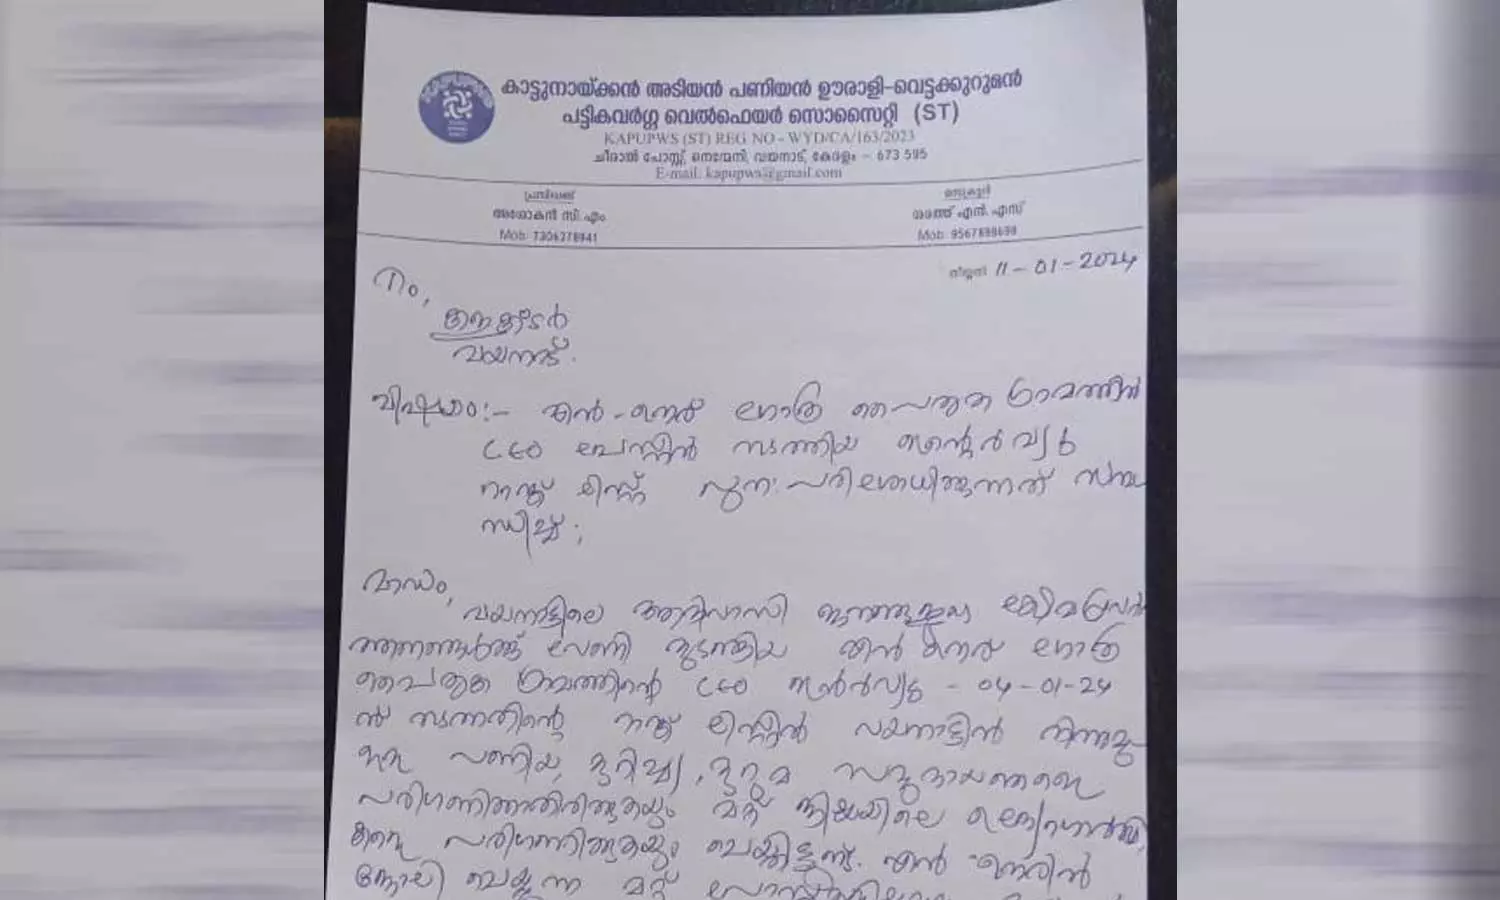 കാട്ടുനായ്ക്കൻ അടിയൻ പണിയൻ ഊരാളി-വെട്ടക്കുറുമൻ
പട്ടികവർഗ്ഗ വെൽഫെയർ സൊസൈറ്റി (ST)
KAPUPWS (ST) REG NO - WYD/CA/163/2023
ചീരാൽ പോസ്റ്റ്, നെന്മേനി, വയനാട്, കേരളം - 673 595
E-mail: kapupws@gmail.com
പ്രസിഡണ്ട്
അശോകൻ സി.എം
Mob: 7306278941
സെക്രട്ടറി
ശരത്ത് എൻ.എസ്
Mob: 9567898698
തിയ്യതി 11-01-2024
വയനാട്.
വിഷയം:- എൻ-ഊര് ഗോത്ര പൈതൃക ഗ്രാമത്തിൽ
CEO പോസ്റ്റിൽ നടത്തിയ ഇന്റർവ്യൂ
റാങ്ക് ലിസ്റ്റ് പുന:പരിശോധിക്കുന്നത് സംബ
ന്ധിച്ച്;
മാഡം,
വയനാട്ടിലെ ആദിവാസി ക്ഷേമപ്രവർ
ത്തനങ്ങൾക്ക് വേണ്ടി തുടങ്ങിയ എൻ ഊര് ഗോത്ര
പൈതൃക ഗ്രാമത്തിന്റെ CEO ഇന്റർവ്യൂ - 04-01-24
ന് നടന്നതിന്റെ റാങ്ക് ലിസ്റ്റിൽ വയനാട്ടിൽ നിന്നുമു
പണിയ, കുറിച്യ, കുറുമ സമുദായങ്ങളെ
പരിഗണിക്കാതിരിക്കുകയും മറ്റ് ജില്ലയിലെ ഉദ്യോഗാർത്ഥി
കളെ പരിഗണിക്കുകയും ചെയ്തിട്ടുണ്ട്. എൻ ഊരിൽ
ജോലി ചെയ്യുന്ന മറ്റ്